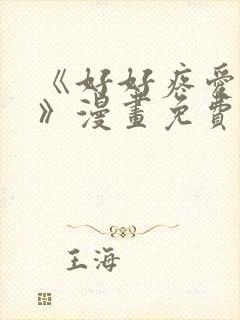 《好好疼愛
》漫畫免費
王海